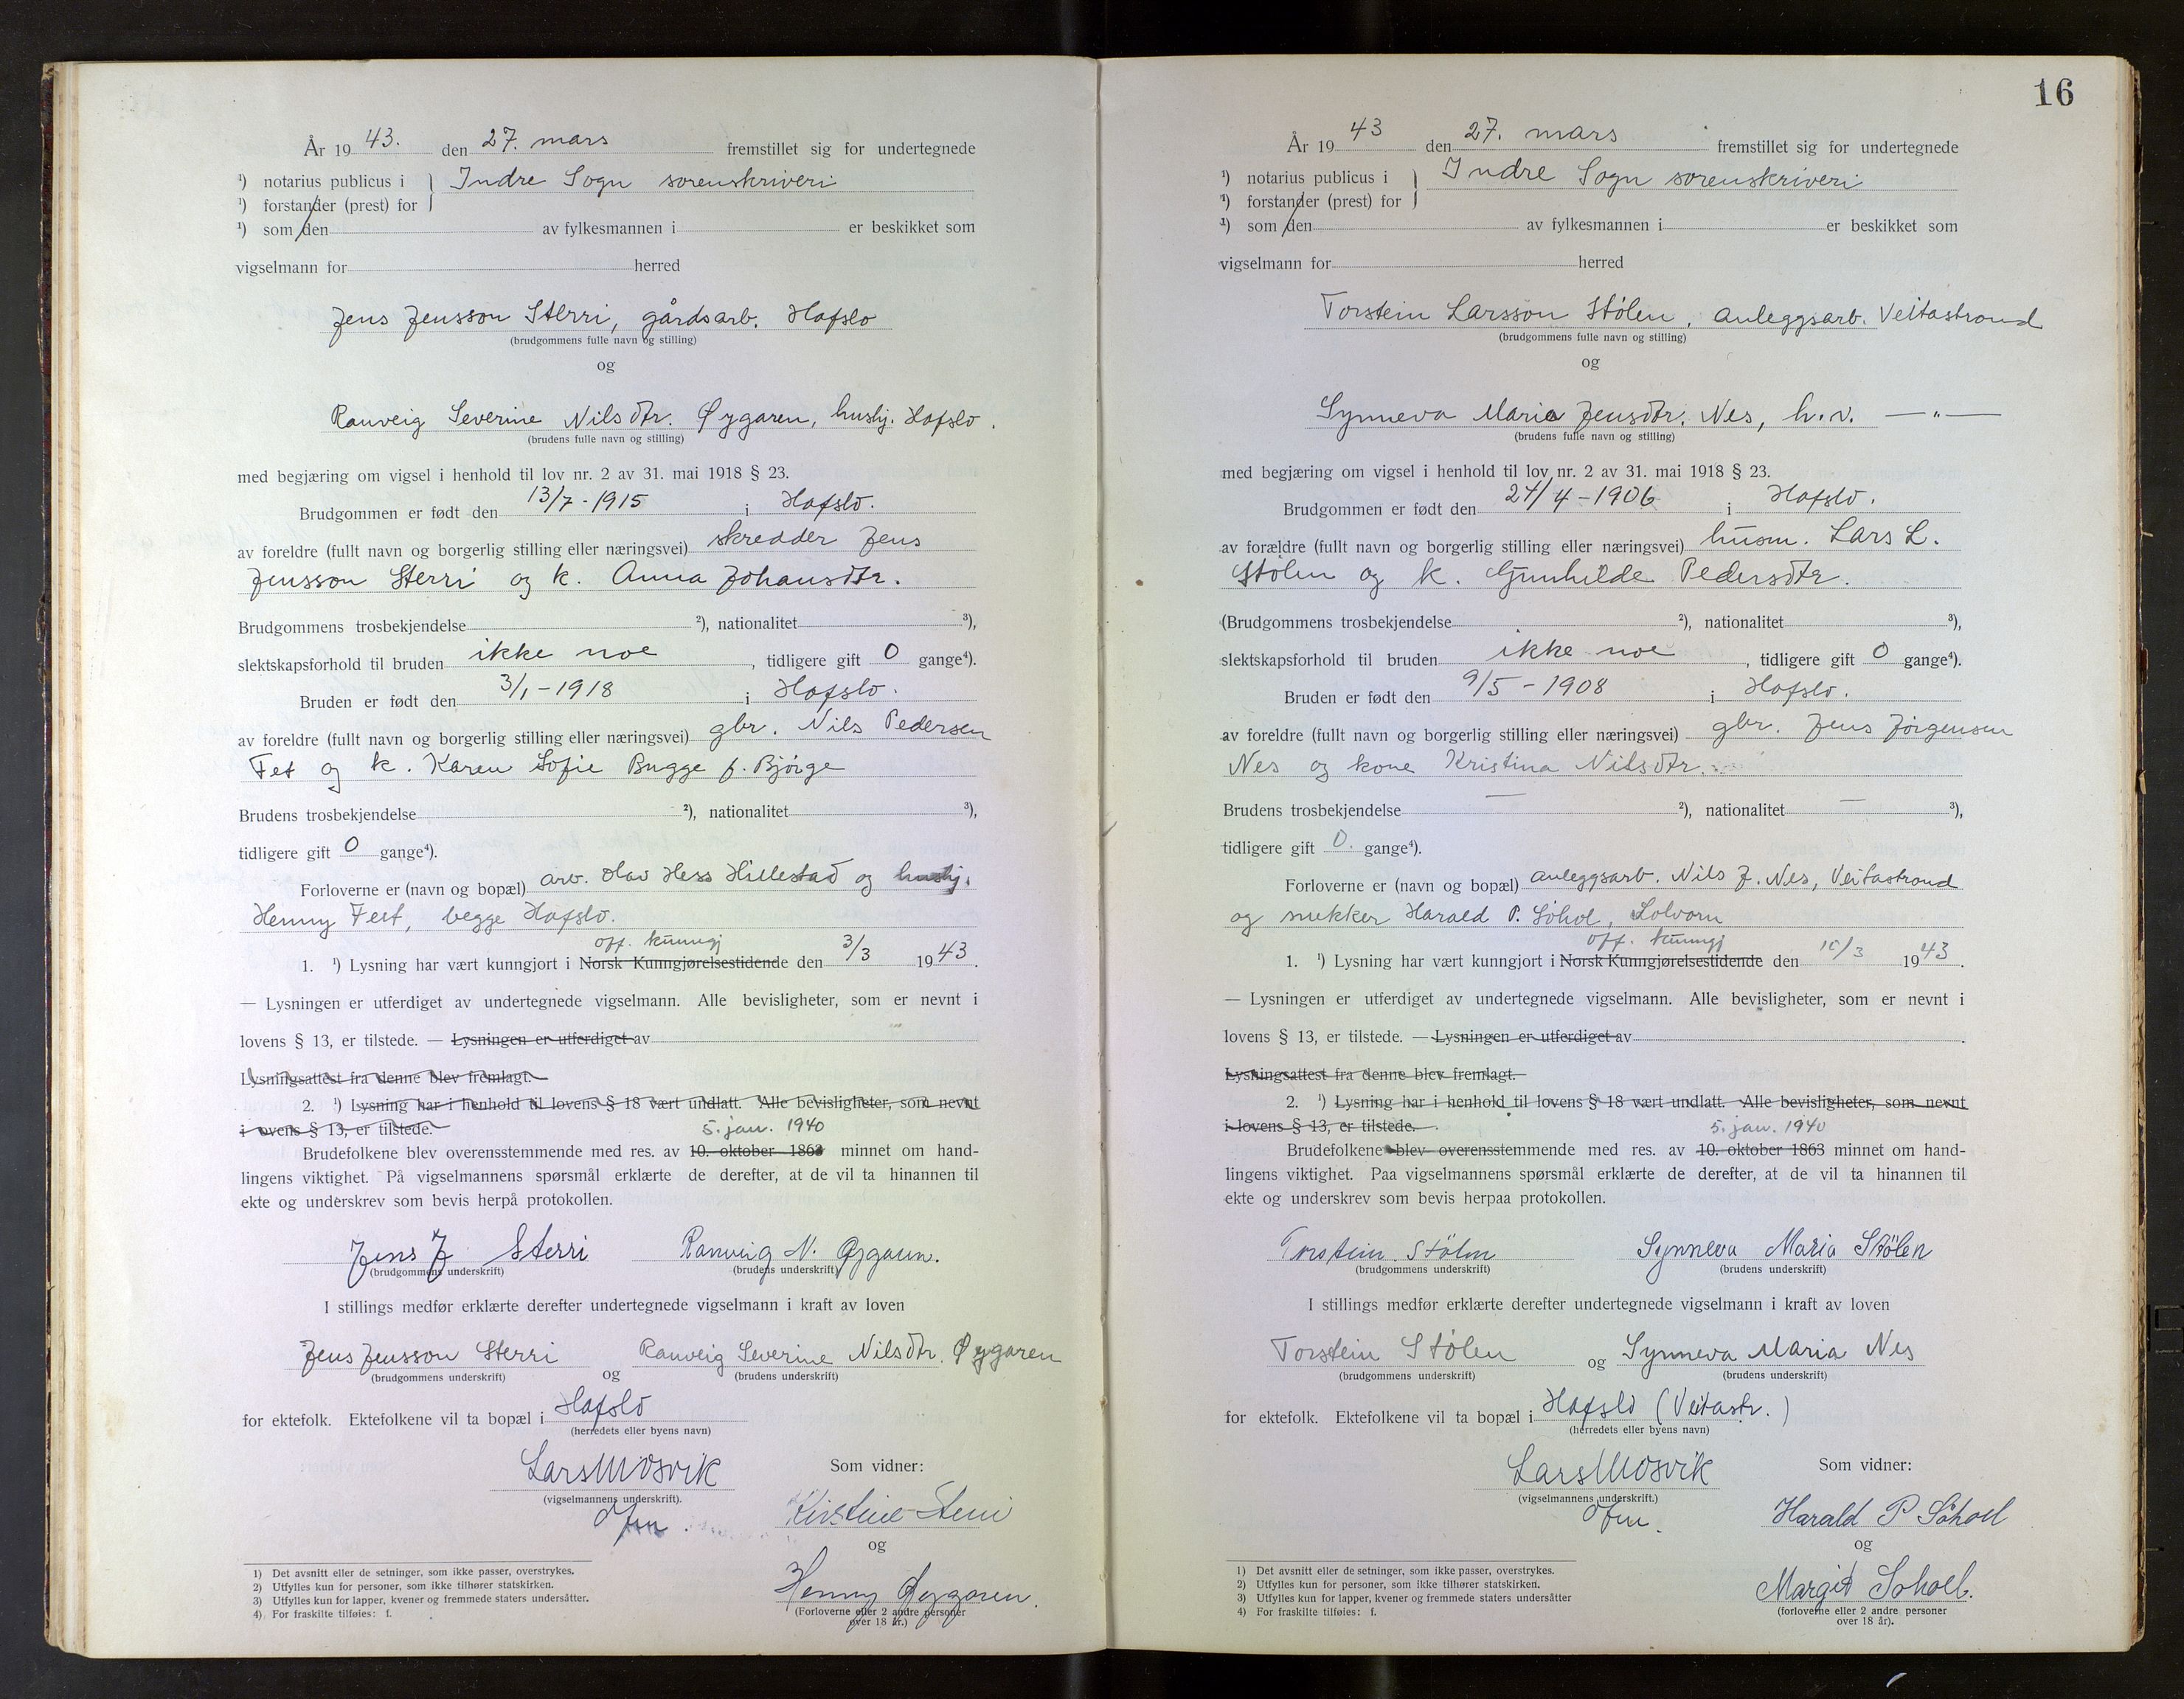 År 19 43. den 27. mars fremstillet sig for undertegnede
¹) notarius publicus i } Indre Sogn sorenskriveri
¹) forstander (prest) for
¹) som den av fylkesmannen i er beskikket som
vigselmann for herred
Jens Jensson Sterri, gårdsarb. Hafslo
(brudgommens fulle navn og stilling)
og
Ranveig Severine Nilsdtr. Øygaren, hushj. Hafslo.
(brudens fulle navn og stilling)
med begjæring om vigsel i henhold til lov nr. 2 av 31. mai 1918 § 23.
Brudgommen er født den 13/7 - 1915 i Hafslo.
av foreldre (fullt navn og borgerlig stilling eller næringsvei) skredder Jens
Jensson Sterri og k. Anna Johansdtr.
Brudgommens trosbekjendelse ²), nationalitet ³),
slektskapsforhold til bruden ikke noe, tidligere gift 0 gange⁴).
Bruden er født den 3/1 - 1918 i Hafslo.
av foreldre (fullt navn og borgerlig stilling eller næringsvei) gbr. Nils Pedersen
Fet og k. Karen Sofie Bugge f. Bjørge
Brudens trosbekjendelse ²), nationalitet ³),
tidligere gift 0 gange⁴).
Forloverne er (navn og bopæl) arb. Olav Hess Hillestad og hushj.
Henny Feet, begge Hafslo.
off. kunngj
1. ¹) Lysning har vært kunngjort i Norsk Kunngjørelsestidende den 3/3 1943.
— Lysningen er utferdiget av undertegnede vigselmann. Alle bevisligheter, som er nevnt i
lovens § 13, er tilstede. — Lysningen er utferdiget av
Lysningsattest fra denne blev fremlagt.
2. ¹) Lysning har i henhold til lovens § 18 vært undlatt. Alle bevisligheter, som nevnt
i lovens § 13, er tilstede.
5. jan. 1940
Brudefolkene blev overensstemmende med res. av 10. oktober 1863 minnet om hand-
lingens viktighet. På vigselmannens spørsmål erklærte de derefter, at de vil ta hinannen til
ekte og underskrev som bevis herpå protokollen.
Jens J Sterri Ranveig N. Øygaren.
(brudgommens underskrift) (brudens underskrift)
I stillings medfør erklærte derefter undertegnede vigselmann i kraft av loven
Jens Jensson Sterri og Ranveig Severine Nilsdtr. Øygaren
(brudgommens underskrift) (brudens underskrift)
for ektefolk. Ektefolkene vil ta bopæl i Hafslo
(herredets eller byens navn)
Lars Mosvik Som vidner:
(vigselmannens underskrift).
Kirstine
og
Henny Øygaren.
(Forloverne eller 2 andre personer
over 18 år.)
1) Det avsnitt eller de setninger, som ikke passer, overstrykes.
2) Utfylles kun for personer, som ikke tilhører statskirken.
3) Utfylles kun for lapper, kvener og fremmede staters undersåtter.
4) For fraskilte tilføies: f.
16
År 19 43 den 27. mars fremstillet sig for undertegnede
¹) notarius publicus i } Indre Sogn sorenskriveri
¹) forstander (prest) for
¹) som den av fylkesmannen i er beskikket som
vigselmann for herred
Torstein Larsson Stølen, anleggsarb. Veitastrond
(brudgommens fulle navn og stilling)
og
Synneva Maria Jensdtr. Nes, h.v. — " —
(brudens fulle navn og stilling)
med begjæring om vigsel i henhold til lov nr. 2 av 31. mai 1918 § 23.
Brudgommen er født den 24/4 - 1906 i Hafslo.
av forældre (fullt navn og borgerlig stilling eller næringsvei) husm. Lars L.
Stølen og k. Gunhilde Pedersdtr.
(Brudgommens trosbekjendelse ²), nationalitet ³),
slektskapsforhold til bruden ikke noe, tidligere gift 0 gange⁴).
Bruden er født den 9/5 - 1908 i Hafslo.
av foreldre (fullt navn og borgerlig stilling eller næringsvei) gbr. Jens Jørgensen
Nes og kone Kristina Nilsdtr.
Brudens trosbekjendelse — ²), nationalitet — ³),
tidligere gift 0. gange⁴).
Forloverne er (navn og bopæl) anleggsarb. Nils J. Nes, Veitastrond
og snekker Harald P. Søhol, Solvorn
off. kunngj
1. ¹) Lysning har vært kunngjort i Norsk Kunngjørelsestidende den 10/3 1943.
— Lysningen er utferdiget av undertegnede vigselmann. Alle bevisligheter, som er nevnt i
lovens § 13, er tilstede. — Lysningen er utferdiget av
Lysningsattest fra denne blev fremlagt.
2. ¹) Lysning har i henhold til lovens § 18 vært undlatt. Alle bevisligheter, som nevnt
i lovens § 13, er tilstede.
5. jan. 1940
Brudefolkene blev overensstemmende med res. av 10. oktober 1863 minnet om hand-
lingens viktighet. Paa vigselmannens spørsmål erklærte de derefter, at de vil ta hinannen til
ekte og underskrev som bevis herpaa protokollen.
Torstein Stølen Synneva Maria Stølen
(brudgommens underskrift) (brudens underskrift)
I stillings medfør erklærte derefter undertegnede vigselmann i kraft av loven
Torstein Stølen og Synneva Maria Nes
(brudgommens underskrift) (brudens underskrift)
for ektefolk. Ektefolkene vil ta bopæl i Hafslo (Veitastr.)
(herredets eller byens navn)
Lars Mosvik Som vidner:
(vigselmannens underskrift.)
Harald P Søhoel
og
Margit Sohoel.
(forloverne eller 2 andre personer
over 18 år).
1) Det avsnitt eller de setninger, som ikke passer, overstrykes.
2) Utfylles kun for personer, som ikke tilhører statskirken.
3) Utfylles kun for lapper, kvener og fremmede staters undersåtter
4) For fraskilte tilføies: f.